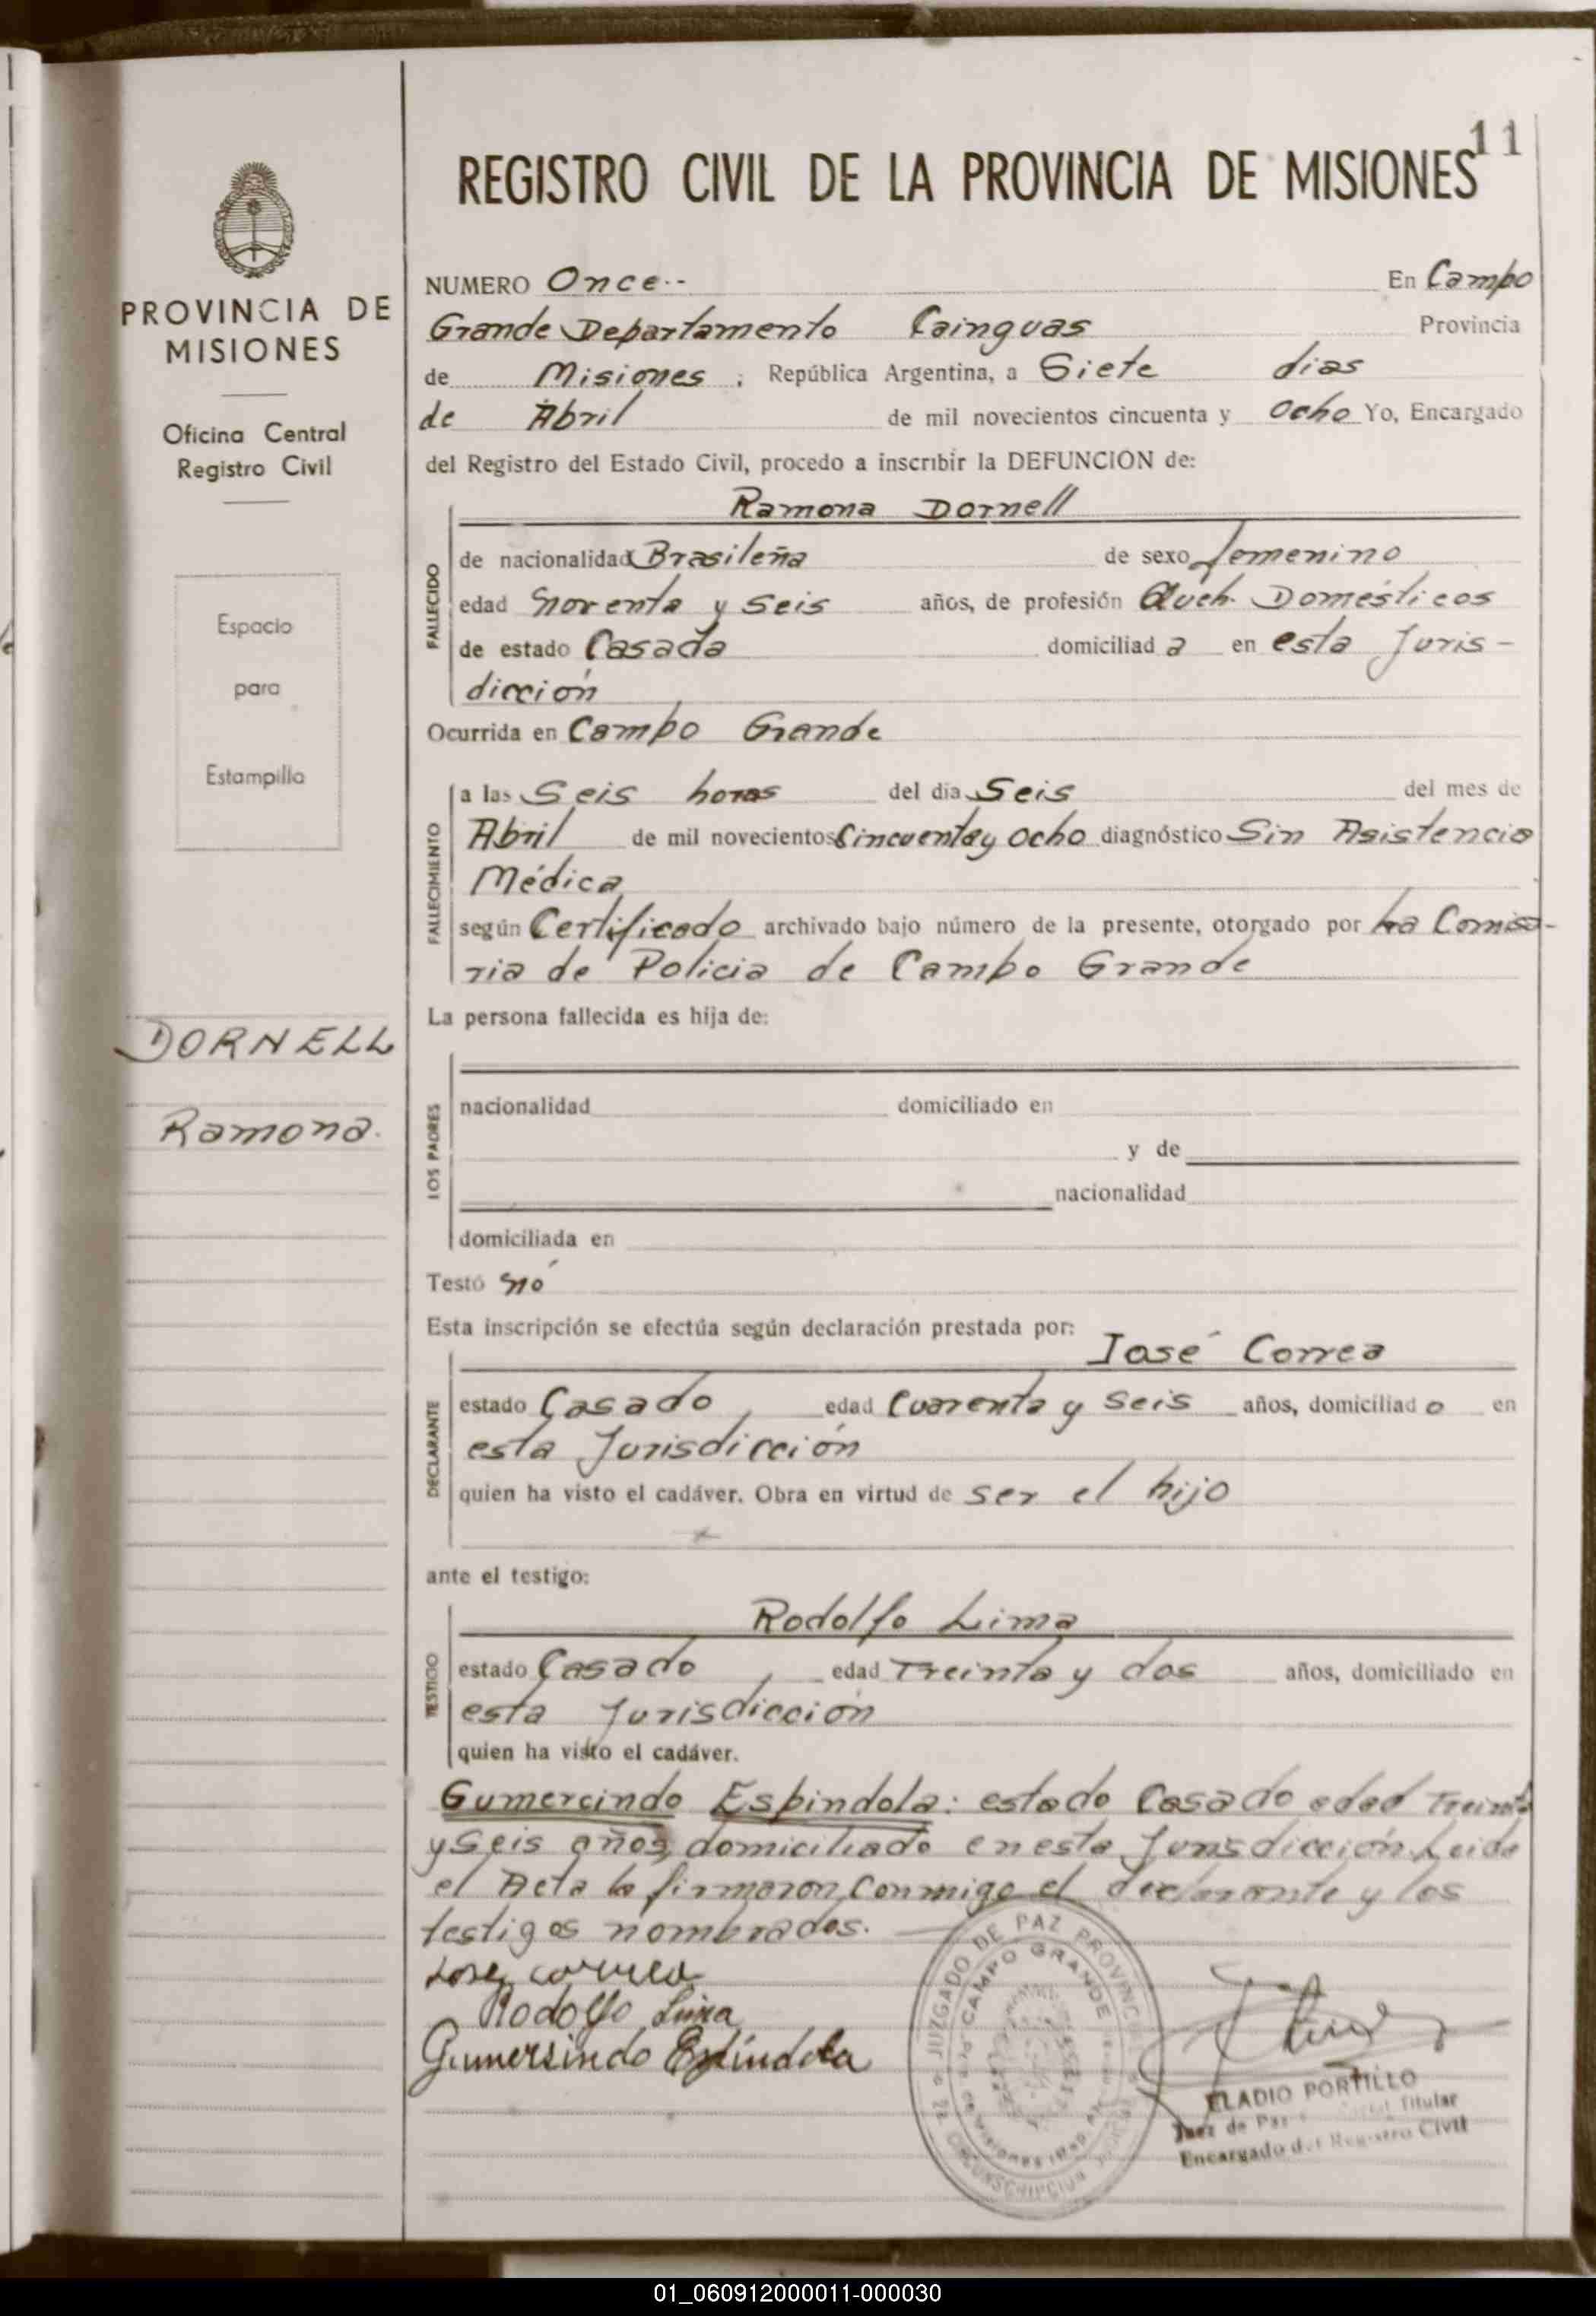 11
REGISTRO CIVIL DE LA PROVINCIA DE MISIONES
PROVINCIA DE
MISIONES
Oficina Central
Registro Civil
Espacio
para
Estampilla
DORNELL
Ramona.
NUMERO Once.- En Campo
Grande Departamento Cainguas Provincia
de Misiones, República Argentina, a Siete dias
de Abril de mil novecientos cincuenta y ocho Yo, Encargado
del Registro del Estado Civil, procedo a inscribir la DEFUNCION de:
Ramona Dornell
FALLECIDO
de nacionalidad Brasileña de sexo femenino
edad noventa y seis años, de profesión Queh. Domésticos
de estado Casada domiciliada en esta Juris-
dicción
Ocurrida en Campo Grande
FALLECIMIENTO
a las Seis horas del dia Seis del mes de
Abril de mil novecientos Cincuenta y ocho diagnóstico Sin Asistencia
Médica
según Certificado archivado bajo número de la presente, otorgado por La Comisa-
ria de Policia de Campo Grande
La persona fallecida es hija de:
LOS PADRES
nacionalidad domiciliado en
y de
nacionalidad
domiciliada en
Testó nó
Esta inscripción se efectúa según declaración prestada por:
José Correa
DECLARANTE
estado Casado, edad Cuarenta y seis años, domiciliado en
esta Jurisdicción
quien ha visto el cadáver. Obra en virtud de ser el hijo
ante el testigo:
Rodolfo Lima
TESTIGO
estado Casado, edad Treinta y dos años, domiciliado en
esta Jurisdicción
quien ha visto el cadáver.
Gumercindo Espindola: estado Casado edad Treinta
y seis años, domiciliado en esta Jurisdicción. Leida
el Acta la firmaron conmigo el declarante y los
testigos nombrados.
Jose correa
Rodolfo Lima
Gumersindo Espíndola
JUZGADO DE PAZ PROVINCIA
CAMPO GRANDE
CIRCUNSCRIPCION
ELADIO PORTILLO
Juez de Paz Titular
Encargado del Registro Civil
01_060912000011-000030